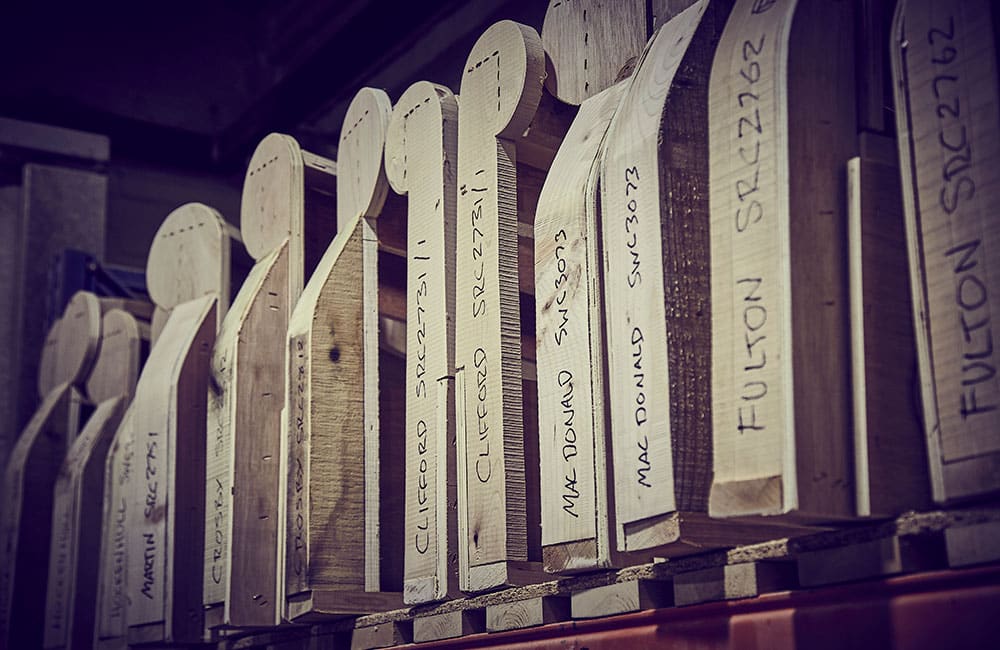 MARTIN SRC2751
CROSBY
CROSBY
CLIFFORD SRC2731/1
CLIFFORD SRC2731/1
MAC DONALD SWC3073
MAC DONALD SWC3073
FULTON SRC2762
FULTON SRC2762